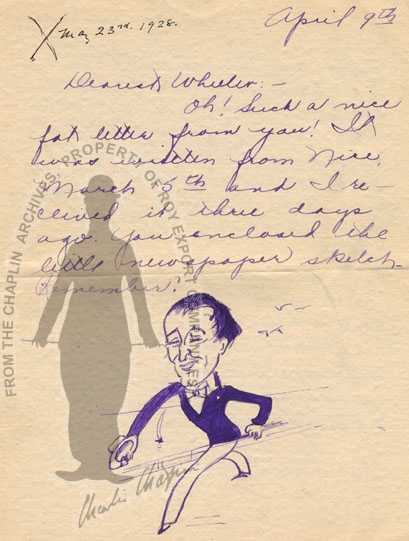 X May 23rd, 1928.
April 9th
Dearest Wheeler: —
Oh! Such a nice
fat letter from you! It
was written from Nice,
March 5th and I re-
ceived it three days
ago. You enclosed the
little newspaper sketch—
remember?
FROM THE CHAPLIN ARCHIVES, PROPERTY OF ROY EXPORT COMPANY EST
Charlie Chaplin